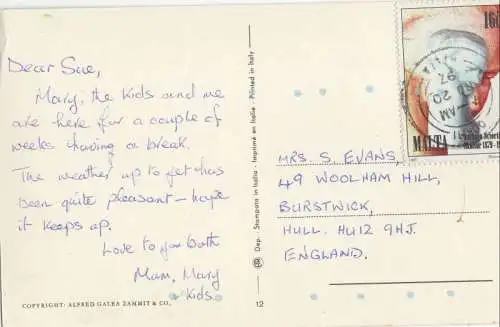 Dear Sue,
Mary, the kids and me
are here for a couple of
weeks having a break.
The weather up to yet has
been quite pleasant – hope
it keeps up.
Love to you both
Mam, Mary
& kids.
COPYRIGHT: ALFRED GALEA ZAMMIT & CO.
12
Dep. Stampato in Italia - Imprimé en Italie - Printed in Italy
16c
MALTA
MRS. S. EVANS,
49 WOOLHAM HILL,
BURSTWICK,
HULL. HU12 9HJ.
ENGLAND.